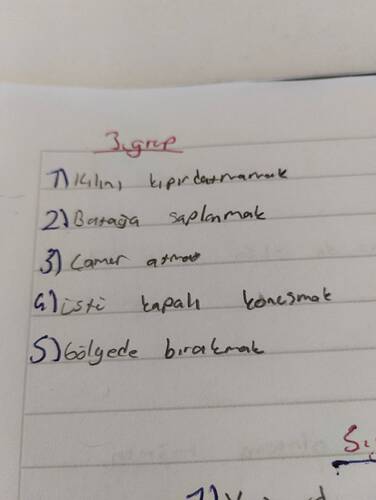 3.grup
1) Kılını kıpırdatmamak
2) Batağa saplanmak
3) Camur atmak
4) üstü kapalı konuşmak
5) Gölgede bırakmak